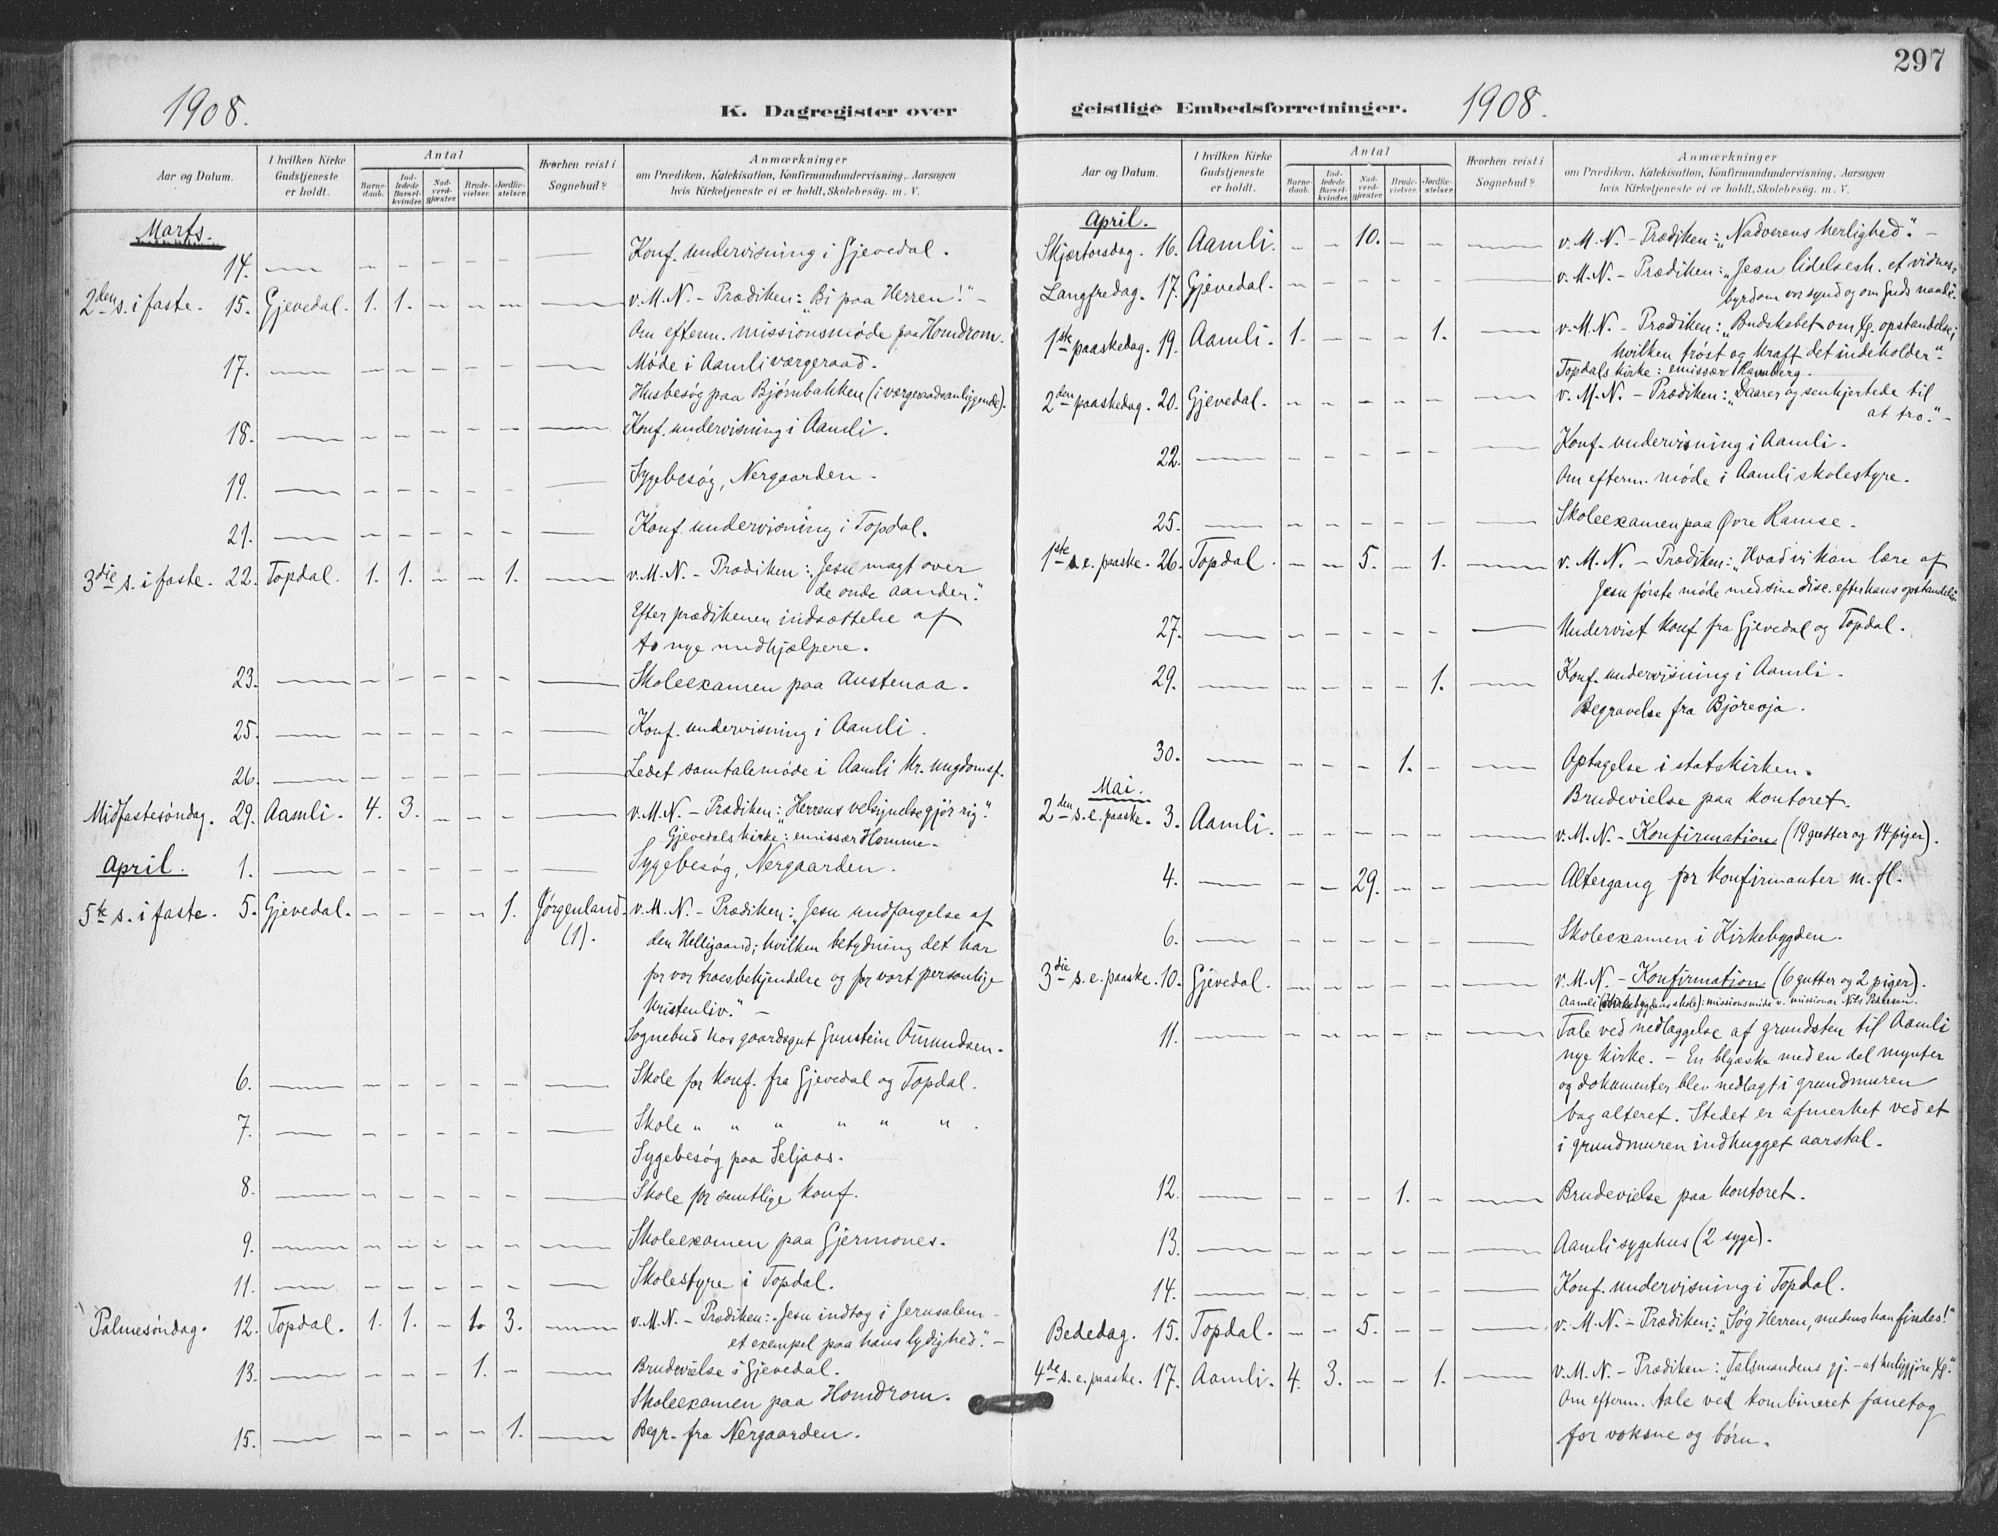 1908.
K. Dagregister over
Aar og Datum. | I hvilken Kirke Gudstjeneste er holdt. | Antal | Barnedaab. | Indledede Barselkvinder. | Nadverdgjæster. | Brudevielser. | Jordfæstelser. | Hvorhen reist i Sognebud? | Anmærkninger om Prædiken, Katekisation, Konfirmandundervisning, Aarsagen hvis Kirketjeneste ei er holdt, Skolebesøg, m. V.
Marts.
14. Konf. undervisning i Gjevedal.
2den s. i faste. 15. Gjevedal. 1. 1. – – – v. M. N. – Prædiken: „Bi paa Herren!" –
Om efterm. missionsmøde paa Homdrom.
17. Møde i Aamli værgeraad.
Husbesøg paa Bjørnbakken (i værgeraadsanliggende).
18. Konf. undervisning i Aamli.
19. Sygebesøg, Nergaarden.
21. Konf. undervisning i Topdal.
3die s. i faste. 22. Topdal. 1. 1. – – 1. v. M. N. – Prædiken: „Jesu magt over
de onde aander."
Efter prædikenen indsættelse af
to nye medhjælpere.
23. Skoleexamen paa Austenaa.
25. Konf. undervisning i Aamli.
26. Ledet samtalemøde i Aamli kr. ungdomsf.
Midfastesøndag. 29. Aamli. 4. 3. – – – v. M. N. – Prædiken: „Herrens velsignelse gjør rig."
Gjevedals kirke: emissær Homme.
April. 1. Sygebesøg, Nergaarden.
5te s. i faste. 5. Gjevedal. – – – – 1. Jørgenland (1). v. M. N. – Prædiken: „Jesu undfangelse af
den Helligaand; hvilken betydning det har
for vor troesbekjendelse og for vort personlige
kristenliv." –
Sognebud hos gaardsgut Gunstein Omundsen.
6. Skole for konf. fra Gjevedal og Topdal.
7. Skole „ „ „ „ „ „ .
Sygebesøg paa Seljaas.
8. Skole for samtlige konf.
9. Skoleexamen paa Gjermones.
11. Skolestyre i Topdal.
Palmesøndag. 12. Topdal. 1. 1. – 1. 3. v. M. N. – Prædiken: „Jesu indtog i Jerusalem –
et exempel paa hans lydighed." –
13. – – – 1. – Brudevielse i Gjevedal.
Skoleexamen paa Homdrom.
15. – – – – 1. Begr. fra Nergaarden.
297
geistlige Embedsforretninger.
1908.
Aar og Datum. | I hvilken Kirke Gudstjeneste er holdt. | Antal | Barnedaab. | Indledede Barselkvinder. | Nadverdgjæster. | Brudevielser. | Jordfæstelser. | Hvorhen reist i Sognebud? | Anmærkninger om Prædiken, Katekisation, Konfirmandundervisning, Aarsagen hvis Kirketjeneste ei er holdt, Skolebesøg, m. V.
April.
Skjærtorsdag. 16. Aamli. – – 10. – – v. M. N. – Prædiken: „Nadverens herlighed." –
Langfredag. 17. Gjevedal. – – – – – v. M. N. – Prædiken: „Jesu lidelsesh. et vidnes-
byrd om vor synd og om Guds naade."
1ste paaskedag. 19. Aamli. 1. – – – 1. v. M. N. – Prædiken: „Budskabet om Jg. opstandelse;
hvilken trøst og kraft det indeholder".
Topdals kirke: emissær Ramberg.
2den paaskedag. 20. Gjevedal. – – – – – v. M. N. – Prædiken: „Daarer og senhjertede til
at tro." –
22. Konf. undervisning i Aamli.
Om efterm. møde i Aamli skolestyre.
25. Skoleexamen paa Øvre Ramse.
1ste s. e. paaske. 26. Topdal. – – 5. – 1. v. M. N. – Prædiken: „Hvad vi kan lære af
Jesu første møde med sine disc. efter hans opstandelse
27. Undervist konf. fra Gjevedal og Topdal.
29. – – – – 1. Konf. undervisning i Aamli.
Begravelse fra Bjorvoja.
30. 1. – Optagelse i statskirken.
Brudevielse paa kontoret.
Mai.
2den s. e. paaske. 3. Aamli. – – – – – v. M. N. – Konfirmation (19 gutter og 14 piger).
4. – – 29. – – Altergang for konfirmanter m. fl.
6. Skoleexamen i Kirkebygden.
3die s. e. paaske. 10. Gjevedal. – – – – – v. M. N. – Konfirmation (6 gutter og 2 piger).
Aamli (Kirkebygdens skole): missionsmøde v. missionær Nils Pedersen.
11. Tale ved nedlæggelse af grundsten til Aamli
nye kirke. – En blyæske med en del mynter
og dokumenter blev nedlagt i grundmuren
bag alteret. Stedet er afmerket ved et
i grundmuren indhugget aarstal.
12. – – – 1. – Brudevielse paa kontoret.
13. Aamli sygehus (2 syge).
14. Konf. undervisning i Topdal.
Bededag. 15. Topdal. – – 5. – – v. M. N. – Prædiken: „Søg Herren, medens han findes!"
4de s. e. paaske. 17. Aamli. 4. 3. – – 1. v. M. N. – Prædiken: „Talsmandens gj. – at herliggjøre Jg."
Om efterm. tale ved kombineret fanetog
for voksne og børn.